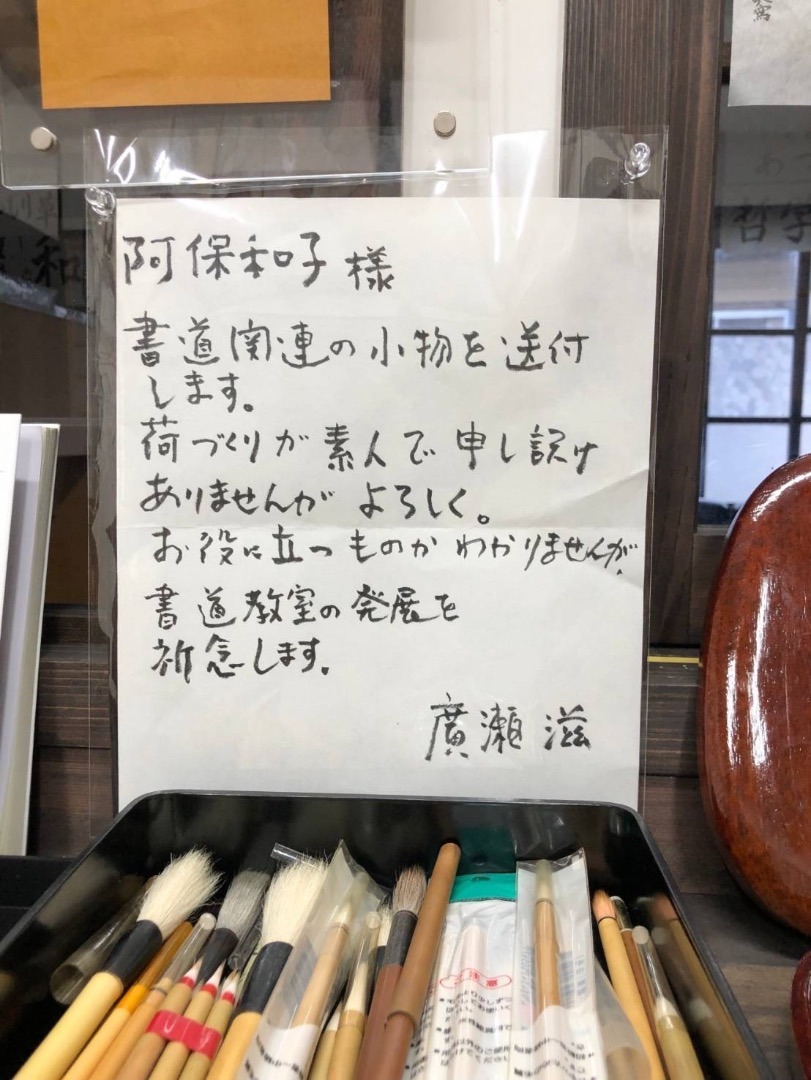 阿保和子 様
書道関連の小物を送付
します。
荷づくりが素人で申し訳け
ありませんが よろしく。
お役に立つものか わかりませんが
書道教室の発展を
祈念します。
廣瀬 滋
和
哲学
ご注意